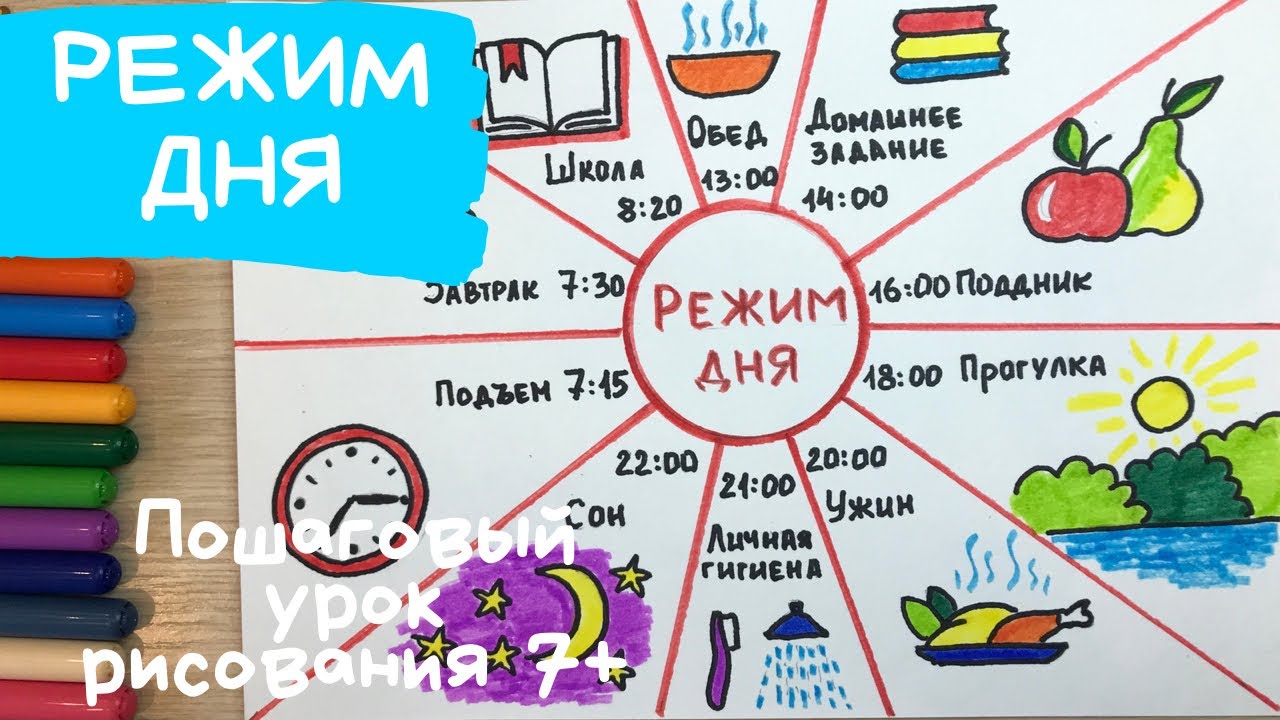 РЕЖИМ
ДНЯ
Школа
8:20
Обед
13:00
Домашнее
задание
14:00
Завтрак 7:30
16:00 Поддник
РЕЖИМ
ДНЯ
Подъем 7:15
18:00 Прогулка
22:00
Сон
21:00
Личная
гигиена
20:00
Ужин
Пошаговый
урок
рисования 7+